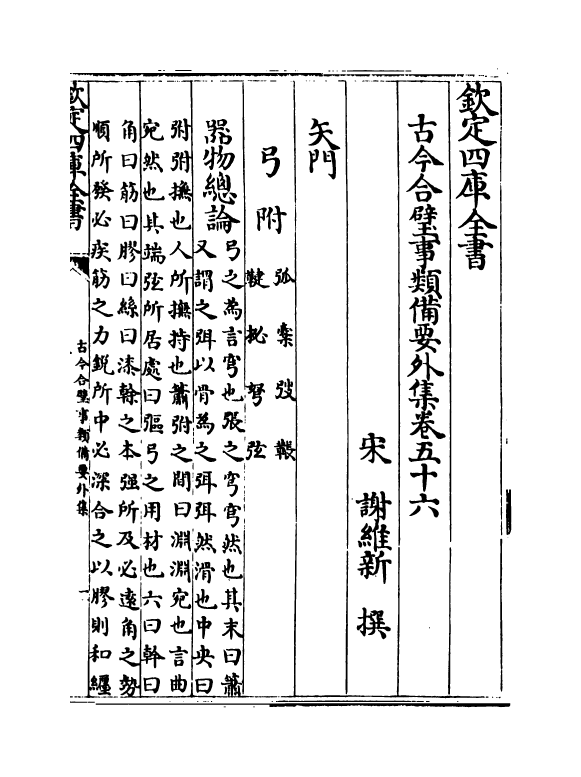 欽定四庫全書
古今合璧事類備要外集卷五十六
宋 謝維新 撰
矢門
弓附
弧 弢 韔
鞬 柲 弩 弦
器物總論
弓之為言穹也張之穹穹然也其末曰簫
又謂之弭以骨為之弭弭然滑也中央曰
弣弣撫也人所撫持也簫弣之間曰淵淵宛也言曲
宛然也其端弦所居處曰彄弓之用材也六曰幹曰
角曰筋曰膠曰絲曰漆幹之本强所及必逺角之勢
順所發必疾筋之力銳所中必深合之以膠則和纒
欽定四庫全書
古今合璧事類備要外集
一